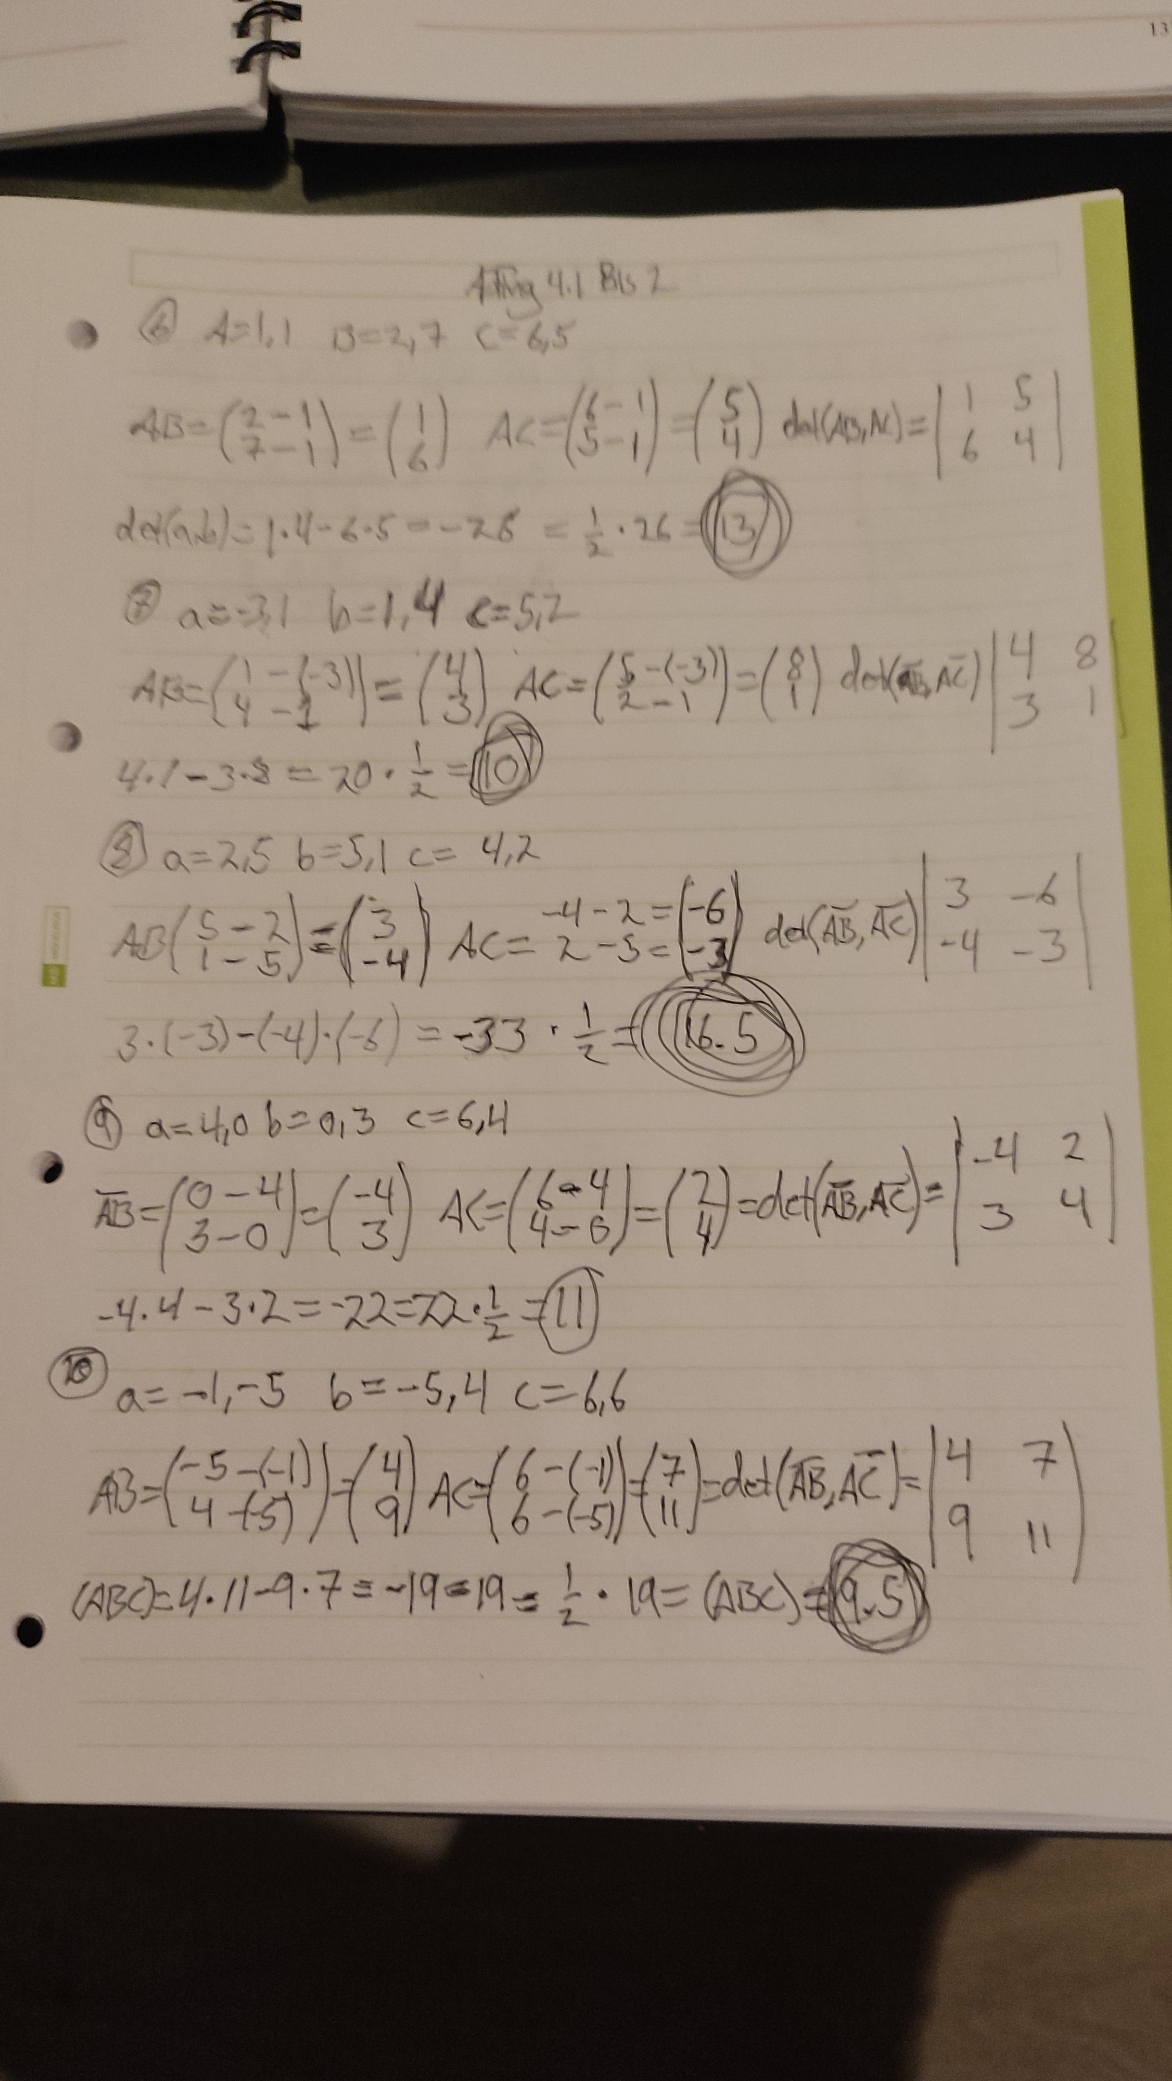 13
Æfing 4.1 Bls 2
6 A=1,1 B=2,7 C=6,5
AB=(2-1 7-1)=(1 6) AC=(6-1 5-1)=(5 4) det(AB,AC)=|1 5 6 4|
det(a,b)=1·4-6·5=-26 = 1/2·26=13
7 a=-3,1 b=1,4 c=5,2
AB=(1-(-3) 4-1)=(4 3) AC=(5-(-3) 2-1)=(8 1) det(AB,AC)|4 8 3 1|
4·1-3·8=20·1/2=10
8 a=2,5 b=5,1 c= 4,2
AB(5-2 1-5)=(3 -4) AC= -4-2= 2-5= (-6 -3) det(AB,AC)|3 -6 -4 -3|
3·(-3)-(-4)·(-6)=-33·1/2=16.5
9 a=4,0 b=0,3 c=6,4
AB=(0-4 3-0)=(-4 3) AC=(6-4 4-0)=(2 4)=det(AB,AC)=|-4 2 3 4|
-4·4-3·2=-22=22·1/2=11
10 a=-1,-5 b=-5,4 c=6,6
AB=(-5-(-1) 4-(-5))=(4 9) AC=(6-(-1) 6-(-5))=(7 11)=det(AB,AC)=|4 7 9 11|
(ABC)=4·11-9·7=-19=19=1/2·19=(ABC)=9.5